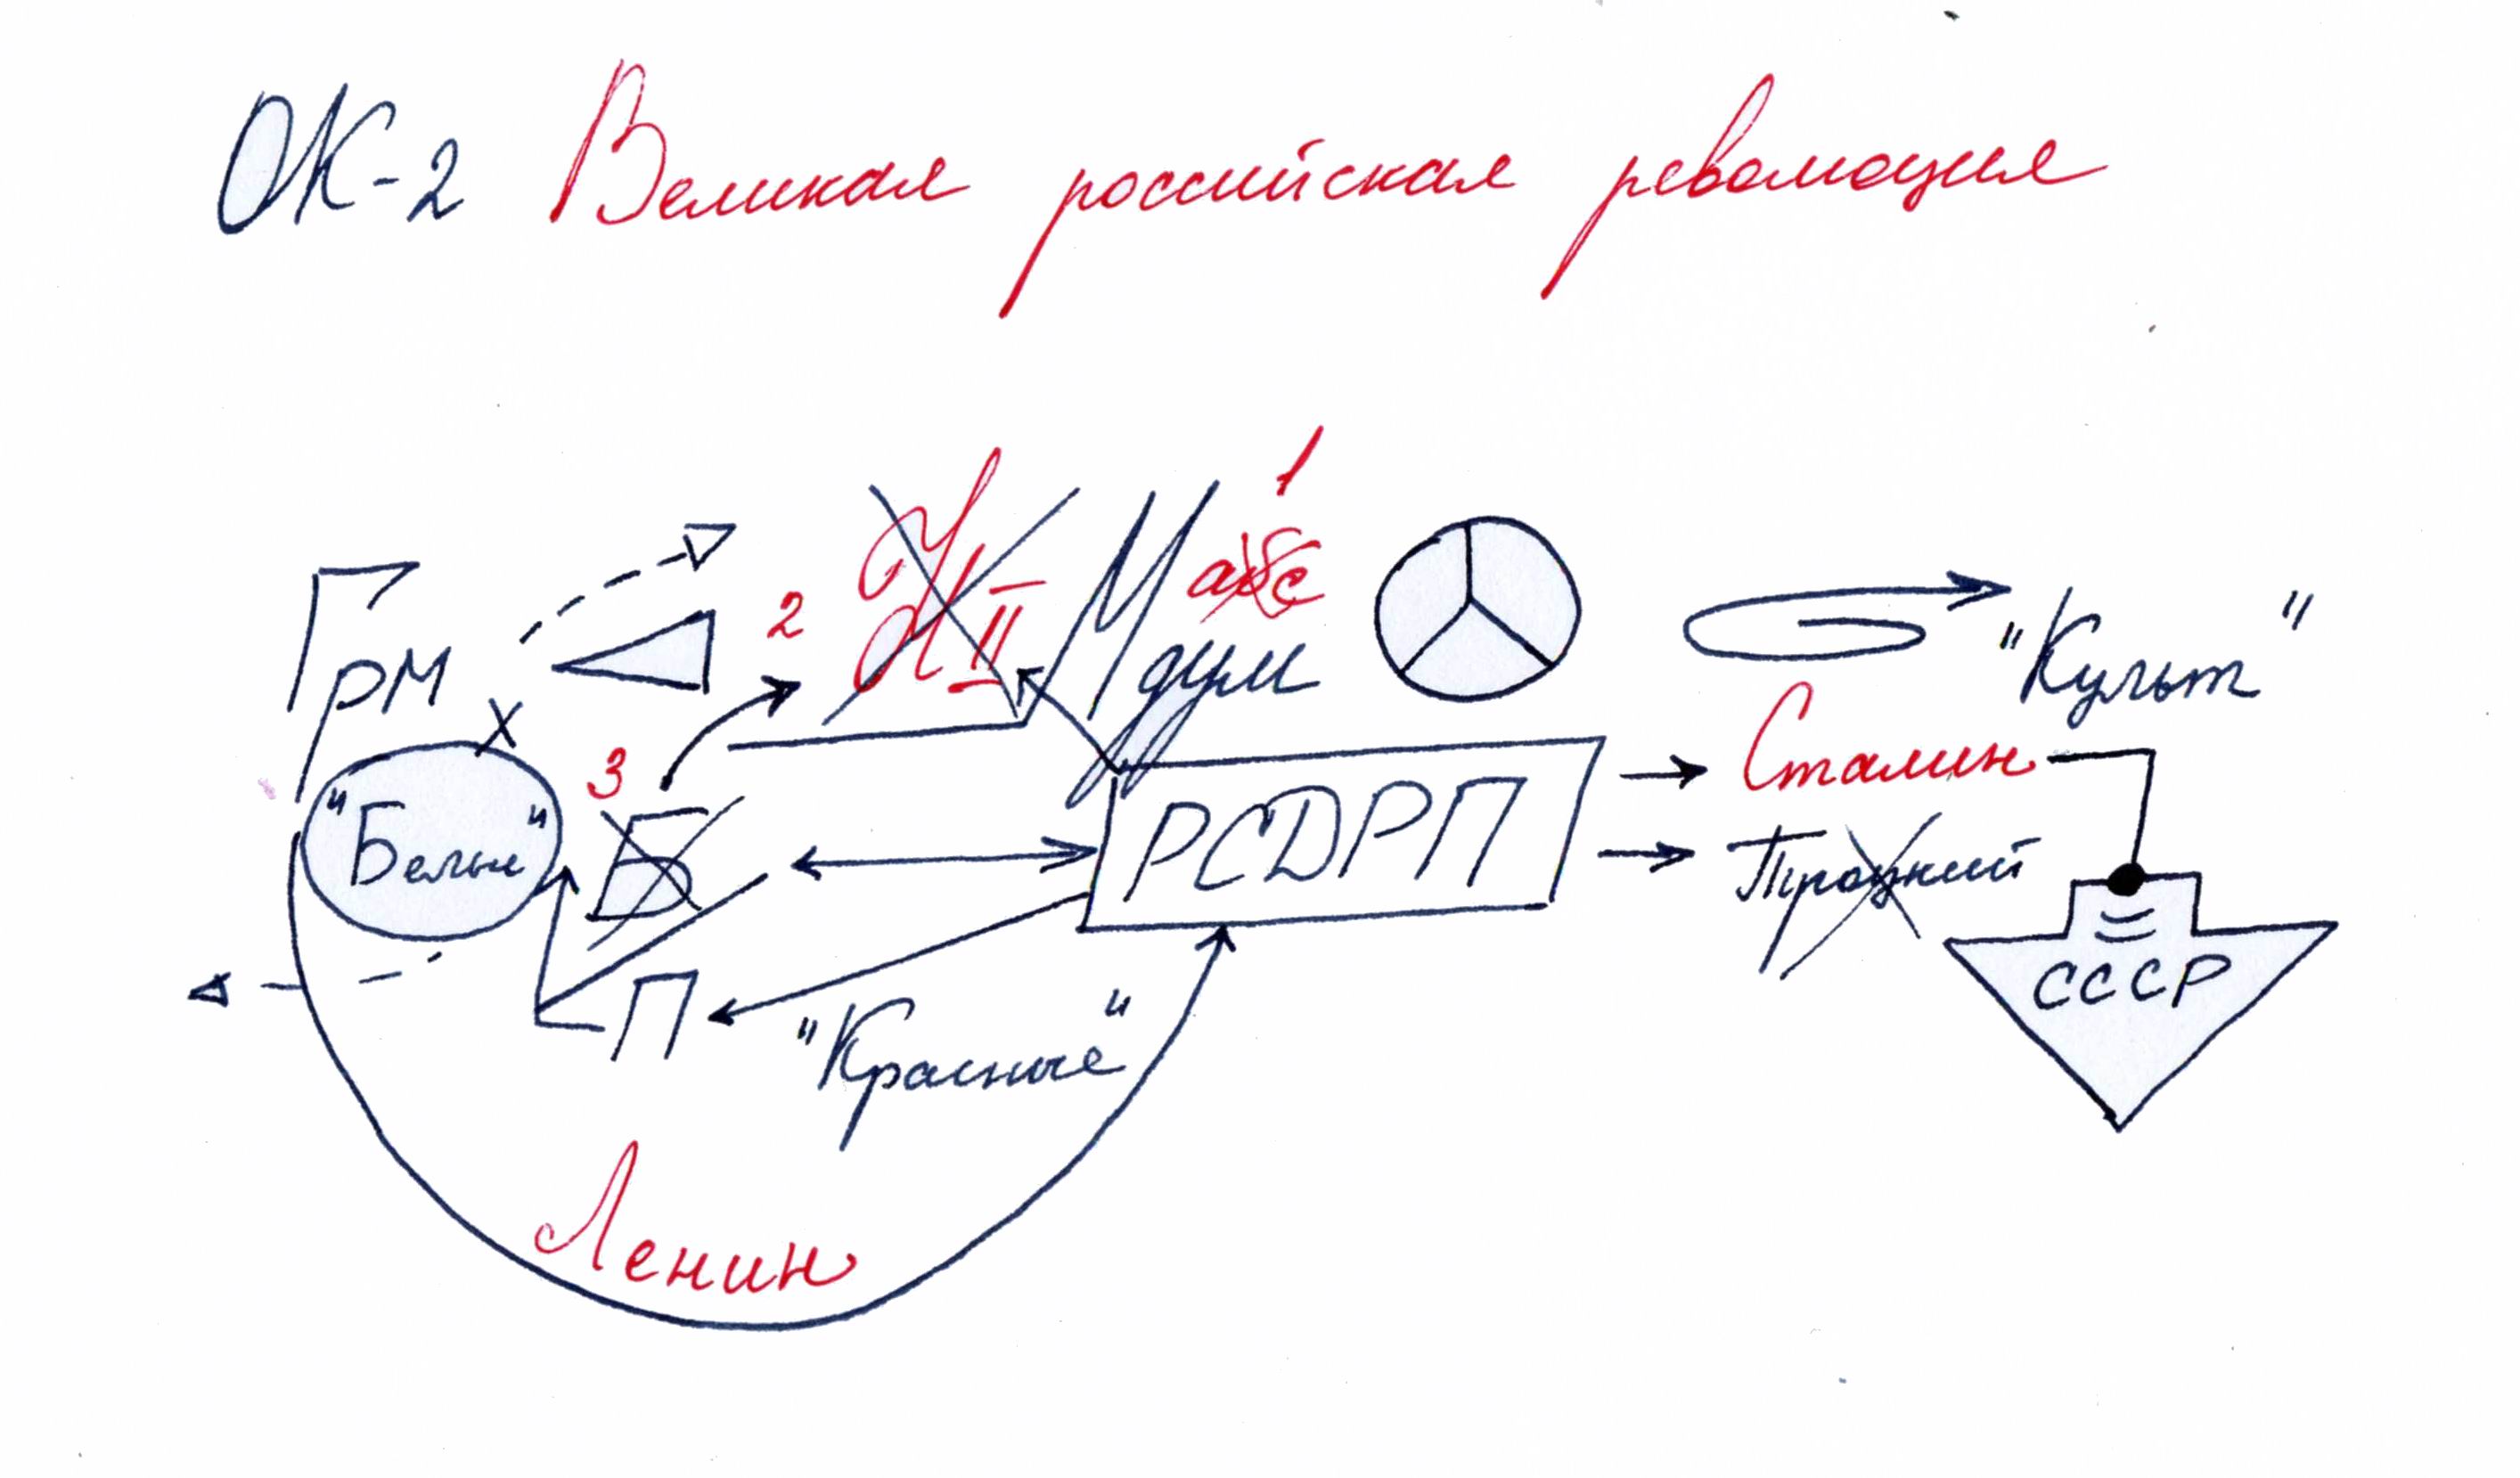 ОК-2 Великая российская революция
1
абс
2
Н II
М
дум
Грм
"Культ"
х
3
Сталин
"Белые"
Б
РСДРП
Троцкий
СССР
П
"Красные"
Ленин